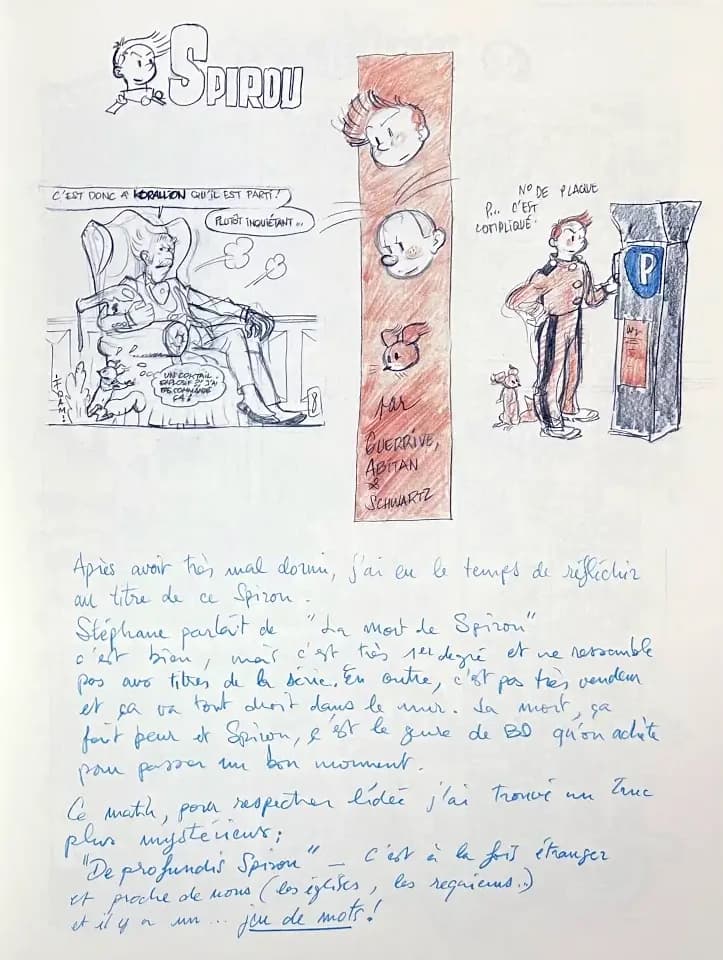 SPIROU
C'EST DONC A KORALLION QU'IL EST PARTI!
PLUTÔT INQUIÉTANT...
UN COKTAIL
EXPLOSIF?! J'AI
PAS COMMANDÉ
ÇA!
8
par
GUERRIVE,
ABITAN
&
SCHWARTZ
N° DE PLAQUE
P... C'EST
COMPLIQUÉ.
P
Après avoir très mal dormi, j'ai eu le temps de réfléchir
au titre de ce Spirou.
Stéphane parlait de "La mort de Spirou"
c'est bien, mais c'est très 1er degré et ne ressemble
pas aux titres de la série. En outre, c'est pas très vendeur
et ça va tout droit dans le mur. La mort, ça
fait peur et Spirou, c'est le genre de BD qu'on achète
pour passer un bon moment.
Ce matin, pour respecter l'idée j'ai trouvé un truc
plus mystérieux:
"De profundis Spirou" — C'est à la fois étranger
et proche de nous (les églises, les requiems..)
et il y a un ... jeu de mots!